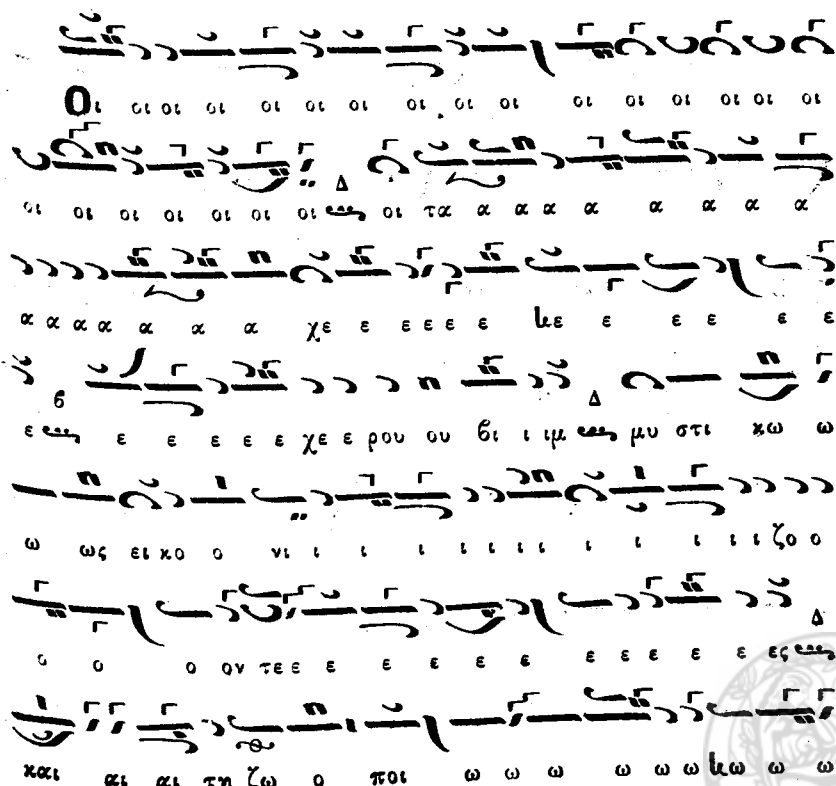 Οι οι οι οι οι οι οι οι οι οι οι οι οι οι οι οι
οι οι οι οι οι οι οι Δ οι τα α α α α α α α α
α α α α α α α χε ε ε ε ε ε ε κε ε ε ε ε ε
ε β ε ε ε ε ε χε ε ρου ου βι ι ιμ Δ μυ στι κω ω
ω ως ει κο ο νι ι ι ι ι ι ι ι ι ι ι ι ι ζο ο
ο ο ο ον τε ε ε ε ε ε ε ε ε ε ε ε ε ες Δ
και αι αι τη ζω ο ποι ω ω ω ω ω ω κω ω ω